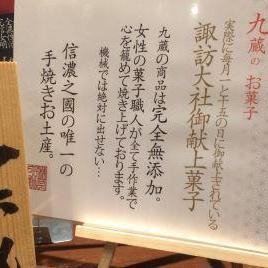 九蔵のお菓子
実際に毎月一と十五の日に御献上されている
諏訪大社御献上菓子
九蔵の商品は完全無添加。
女性の菓子職人が全て手作業で
心を籠めて焼き上げております。
機械では絶対に出せない…
信濃之國の唯一の
手焼きお土産。